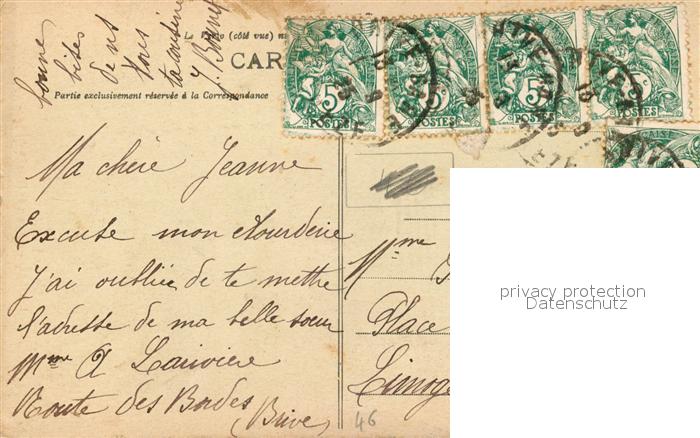 bonne
bises
de ns
tous
ta cousine
Le Dévo (côté vue) n
CAR
Partie exclusivement réservée à la Correspondance
5 POSTES
5 POSTES
5 POSTES
POSTES
Ma chère Jeanne
Excuse mon étourderie
J'ai oubliée de te mettre
l'adresse de ma belle soeur
Mme A Larivière
Route des Bordes (Brive)
Mme
Place
Limoge
46
privacy protection
Datenschutz